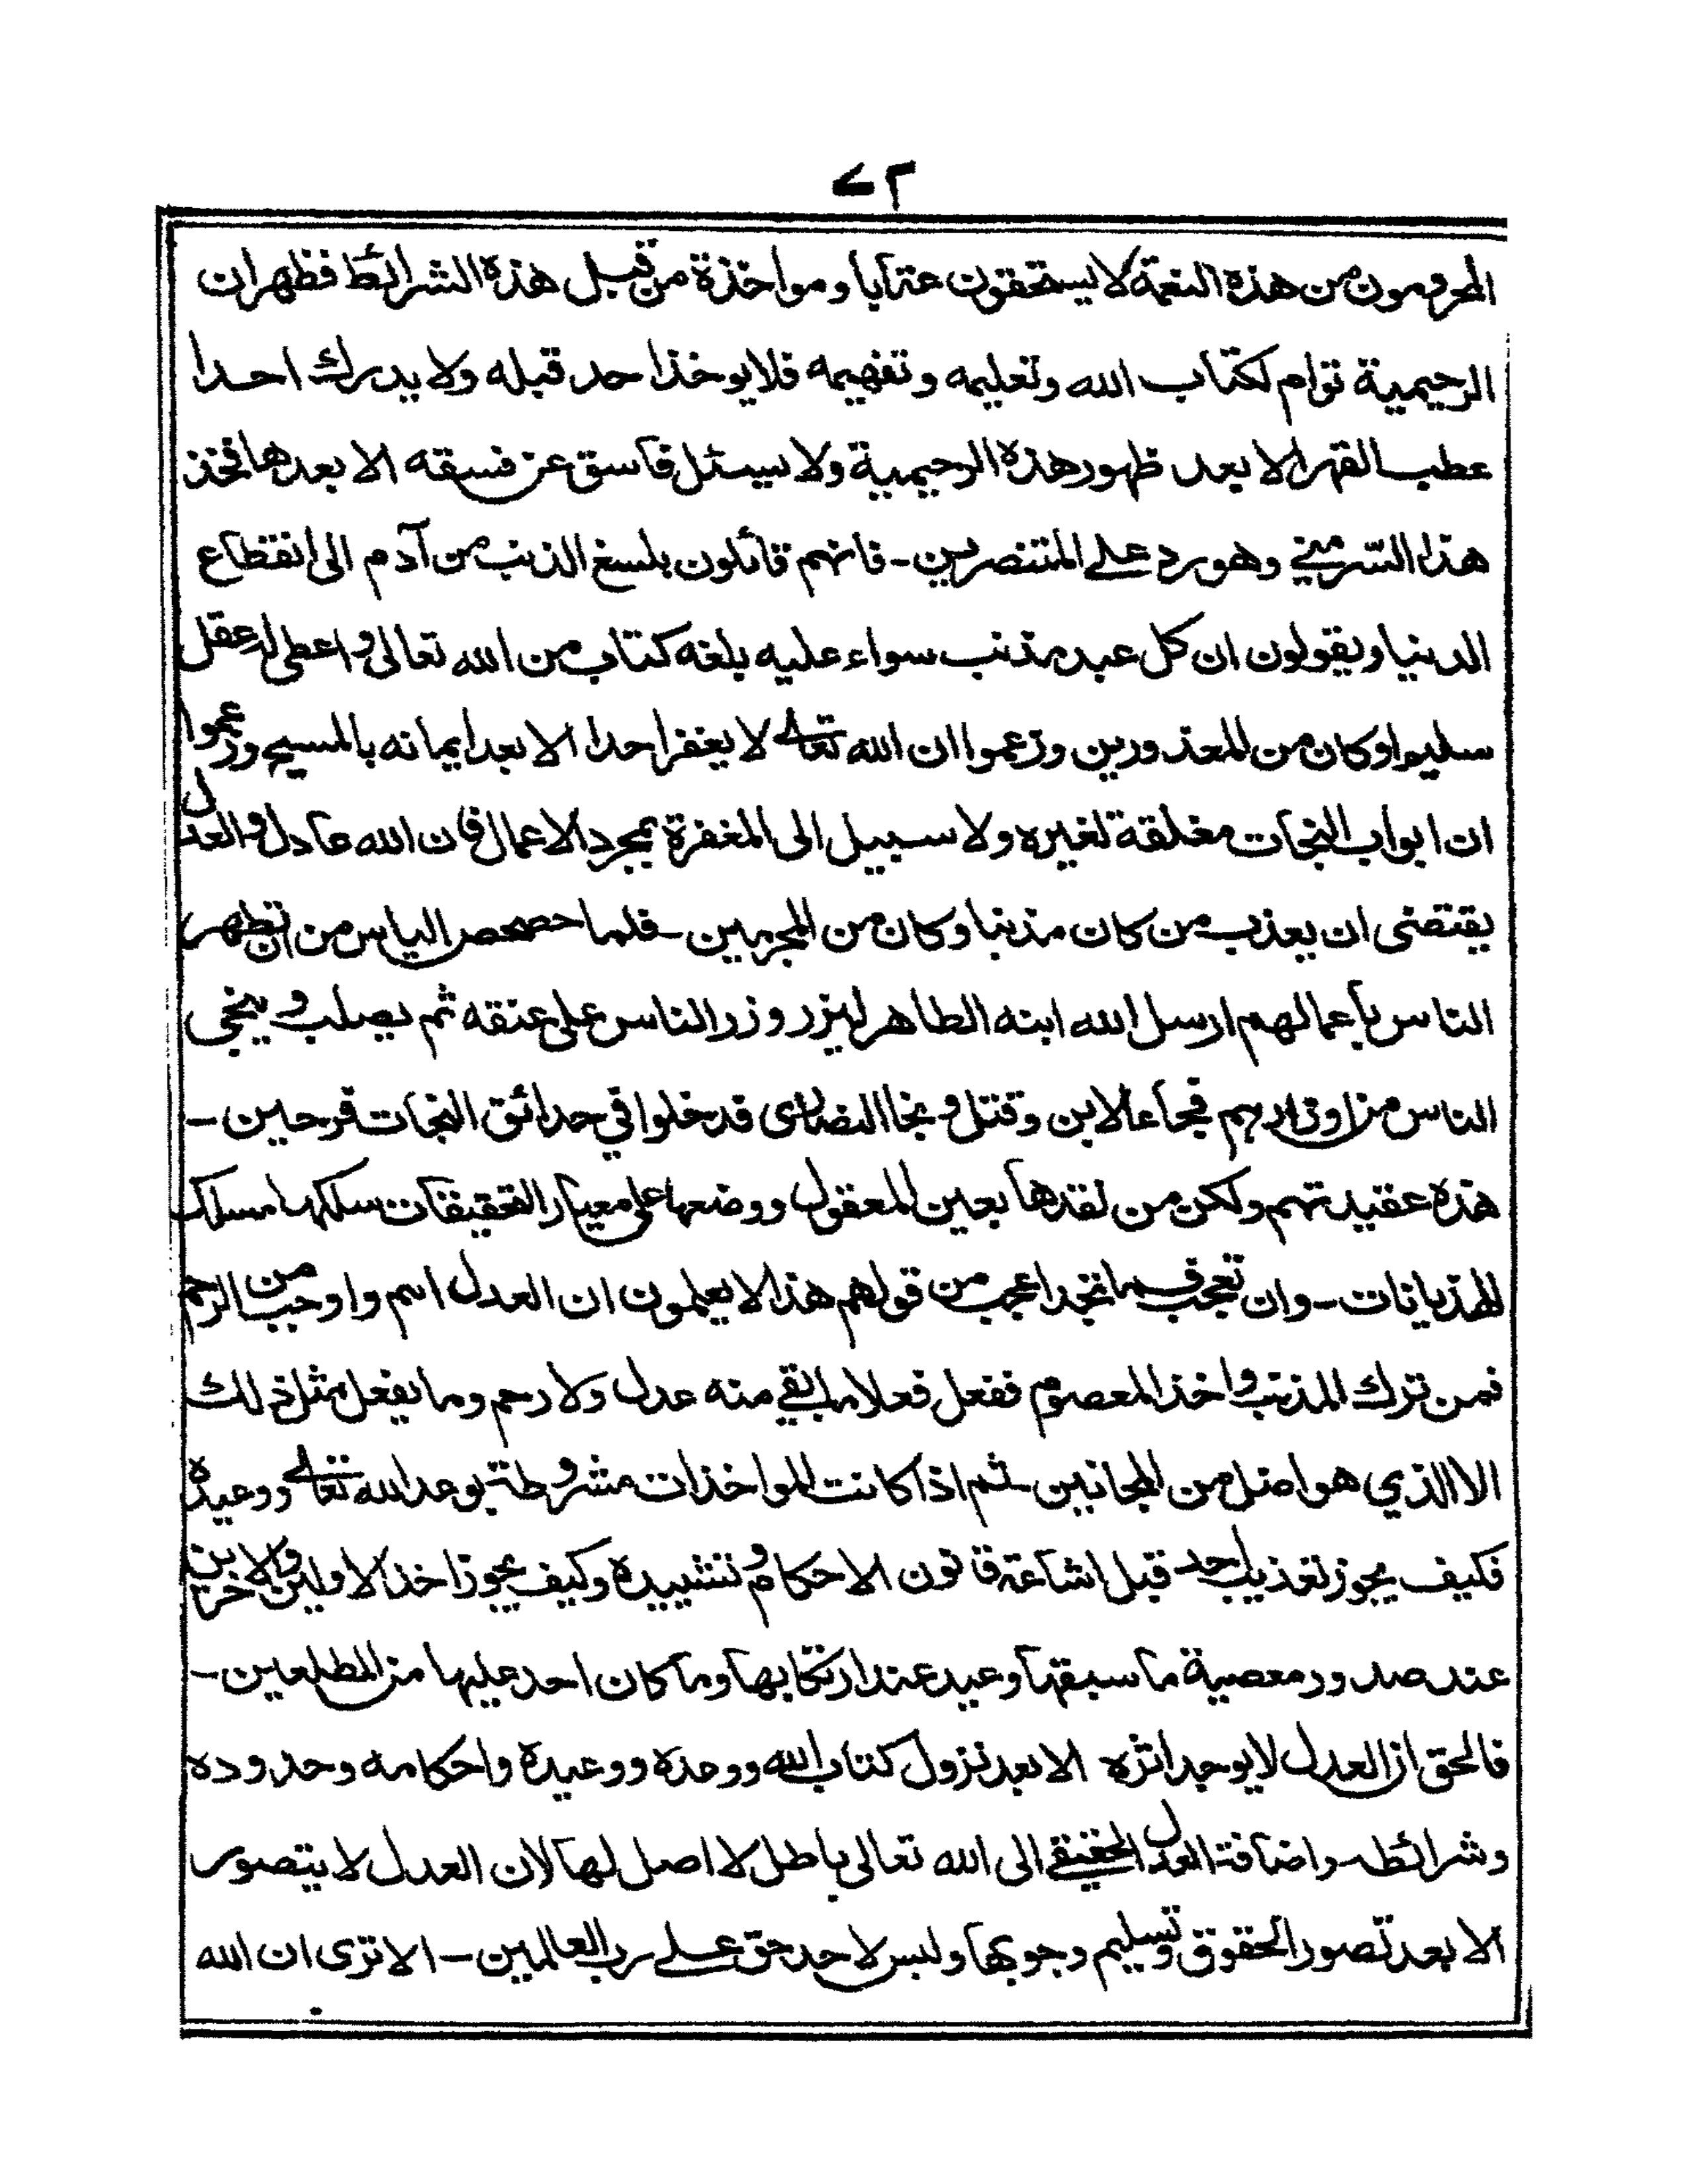 ٧٣
المحرومون من هذه النعمة لا يستحقون عتابا ومواخذة من قبل هذه الشرائط فظهر ان
الرحيمية توام لكتاب الله وتعليمه وتفهيمه فلا يوخذ احد قبله ولا يدرك احدا
عطب القهر الا بعد ظهور هذه الرحيمية ولا سيئل فاسق عن فسقه الا بعدها فخذ
هذا السّر مني وهو رد على المتنصرين - فانهم قائلون بلسغ الذنب من آدم الى انقطاع
الدنيا ويقولون ان كل عبد مذنب سواء عليه بلغه كتاب من الله تعالى و اعطى له عقل
سليم او كان من المعذورين وزعموا ان الله تعالى لا يغفر احدا الا بعد ايمانه بالمسيح وزعموا
ان ابواب النجات مغلقة لغيره ولا سبيل الى المغفرة بمجرد الاعمال فان الله عادل و العدل
يقتضى ان يعذب من كان مذنبا وكان من المجرمين - فلما حصحص الياس من ان تطهر
الناس باعمالهم ارسل الله ابنه الطاهر ليزر وزر الناس على عنقه ثم يصلب و ينجى
الناس من اوزارهم فجاء الابن وقتل و نجا النصارى فدخلوا في حدائق النجات فرحين -
هذه عقيدتهم ولكن من نقدها بعين المعقول ووضعها على معيار التحقيقات سلكها مسلك
الهذيانات - وان تعجب فما تجد اعجب من قولهم هذا لا يعلمون ان العدل اهم واوجب من الرحم
فمن ترك المذنب و اخذ المعصوم ففعل فعلا ما بقي منه عدل ولا رحم وما يفعل مثل ذلك
الا الذي هو اضل من المجانين - ثم اذا كانت المواخذات مشروطة بوعد الله تعالى ووعيده
فكيف يجوز تعذيب احد قبل اشاعة قانون الاحكام و تشييده وكيف يجوز اخذ الاولين والاخرين
عند صدور معصية ما سبقها وعيد عند ارتكابها وما كان احد عليها من المطلعين -
فالحق ان العدل لا يوجد اثره الا بعد نزول كتاب الله ووعده ووعيده واحكامه وحدوده
وشرائطه - واضافة العدل الحقيقي الى الله تعالى باطل لا اصل لها لان العدل لا يتصور
الا بعد تصور الحقوق وتسليم وجوبها وليس لاحد حق على رب العالمين - الا ترى ان الله